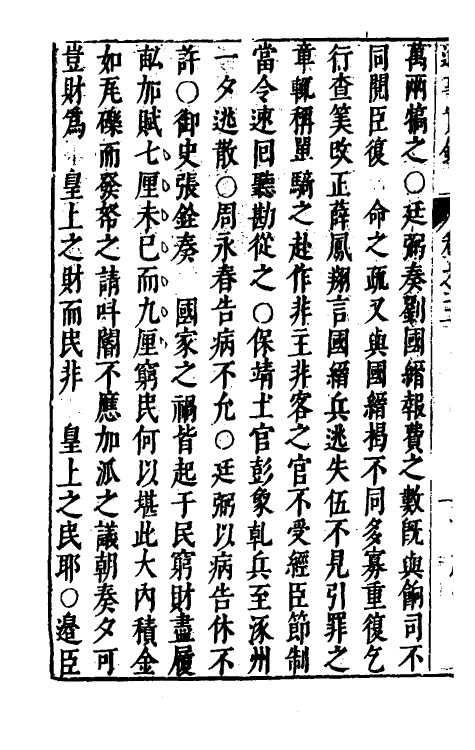 萬兩犒之○廷弼奏劉國縉報費之數既與餉司不
同開臣復　命之疏又與國縉揭不同多寡重復乞
行查筭改正薛鳳翔言國縉兵逃失伍不見引罪之
章輒稱單騎之赴作非主非客之官不受經臣節制
當令速回聽勘從之○保靖土官彭象乹兵至涿州
一夕逃散○周永春告病不允○廷弼以病告休不
許○御史張銓奏　國家之禍皆起于民窮財盡履
畝加賦七厘未已而九厘窮民何以堪此大內積金
如瓦礫而發帑之請呌閽不應加派之議朝奏夕可
豈財爲　皇上之財而民非　皇上之民耶○邉臣